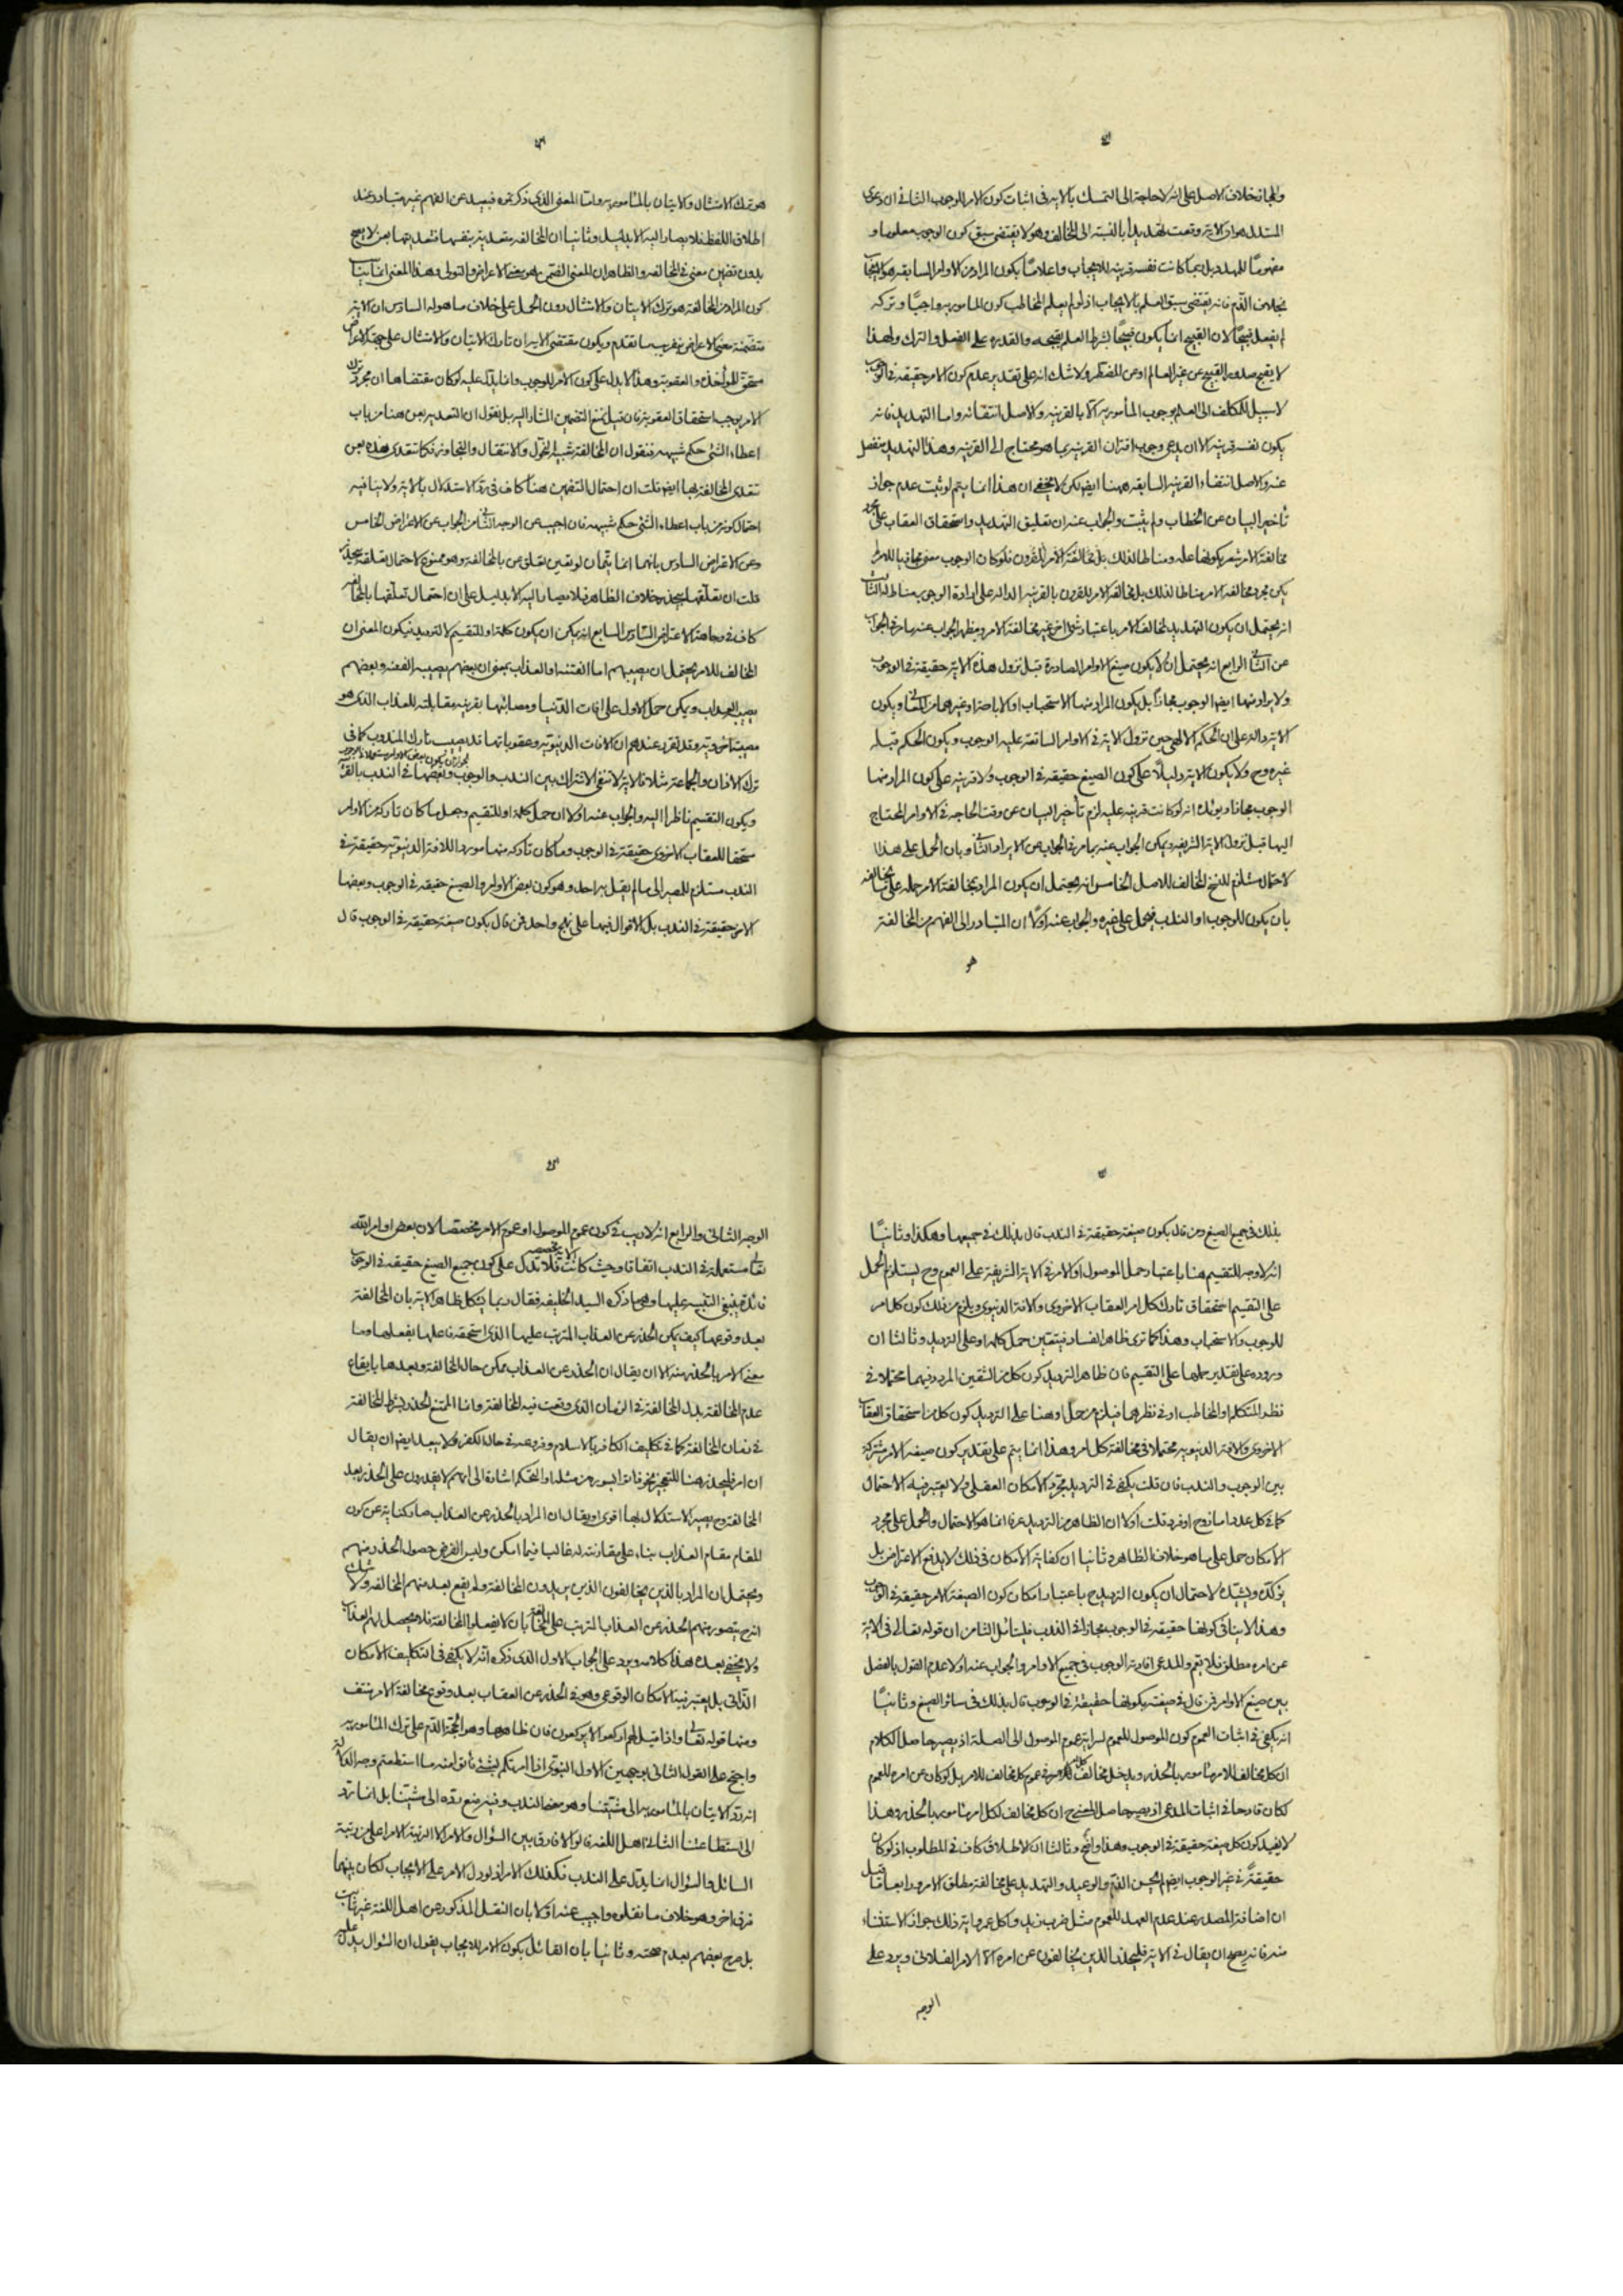 والمجاز خلاف الاصل على انه لا حاجة الى التمسك بالاية فى اثبات كون الامر للوجوب الثانى ان دعوى
المستدل هو ان الاية وقعت تهديدا بالنسبة الى المخالف وهو لا يقتضى سبق كون الوجوب معلوما و
مفهوما للمهدد بل ربما كانت نفسه قرينة للايجاب واعلاما بكون المراد من الاوامر السابقة هو الايجاب
بخلاف الذم فانه يقتضى سبق العلم بالايجاب اذ لو لم يعلم المخاطب كون المامور به واجبا وتركه
لم يفعل قبيحا لان القبيح انما يكون قبيحا بشرط العلم بقبحه والقدرة على الفعل والترك ولهذا
لا يقبح صدور القبيح عن غير العالم او عن المضطر ولا شك انه على تقدير عدم كون الامر حقيقة فى الوجوب
لا سبيل للمكلف الى العلم بوجوب المأمور به الا بالقرينة والاصل انتفائه واما التهديد فانه
يكون نفسه قرينة الا ان يدعى وجوب اقتران القرينة بما هو محتاج الى القرينة وهذا التهديد منفصل
عنه والاصل انتفاء القرينة السابقة ههنا ايضا لكن لا يخفى ان هذا انما يتم لو ثبت عدم جواز
تأخير البيان عن الخطاب ولم يثبت والجواب عنه ان تعليق التهديد واستحقاق العقاب على مجرد
مخالفة الامر مشعر بكونها علة ومناطا لذلك بل مخالفة الامر المقرون فلو كان الوجوب معنى مجازيا للامر لم
يكن مجرد مخالفة الامر مناطا لذلك بل مخالفة الامر المقرون بالقرينة الدالة على ارادة الوجوب مناط له الثالث
انه يحتمل ان يكون التهديد لمخالف الامر باعتبار شئ اخر غير مخالفة الامر ومظهر الجواب عنه ما مر فى الجواب
عن الثانى الرابع انه يحتمل ان لا يكون صيغ الاوامر الصادرة قبل نزول هذه الاية حقيقة فى الوجوب
ولا يراد منها ايضا الوجوب مجازا بل يكون المراد منها الاستحباب او الاباحة او غيرهما من المعانى ويكون
الاية دالة على ان الحكم الالهى حين نزول الاية فى الاوامر السابقة عليه الوجوب ويكون الحكم قبله
غيره وح ولا يكون الاية دليلا على كون الصيغ حقيقة فى الوجوب ولا قرينة على كون المراد منها
الوجوب مجازا ويؤيد انه لو كانت قرينة عليه لزم تأخير البيان عن وقت الحاجة فى الاوامر المحتاج
اليها قبل نزول الاية الشريفة ويمكن الجواب عنه بما مر فى الجواب عن الايراد الثانى وبان الحمل على هذا
الاحتمال مستلزم للنسخ المخالف للاصل الخامس انه يحتمل ان يكون المراد بمخالفة الامر حمله على ما يخالفه
بان يكون للوجوب او الندب فيحمل على غيره والجواب عنه اولا ان المتبادر الى الفهم من المخالفة
هو
هو ترك الامتثال والاتيان بالمأمور به واما المعنى الذى ذكرتموه فبعيد عن الفهم غير متبادر عند
اطلاق اللفظ فلا يصار اليه الا بدليل وثانيا ان المخالفة متعدية بنفسها فتعديتها بعن لا يصح
بدون تضمين معنى فى المخالفة والظاهر ان المعنى المضمن هو معنى الاعراض والتولى وهذا المعنى انما يناسب
كون المراد من المخالفة هو ترك الاتيان والامتثال دون الحمل على خلاف ما هو له السادس ان الاية
متضمنة معنى الاعراض بقرينة ما تقدم ويكون مقتضى الاية ان تارك الاتيان والامتثال على جهة الاعراض
مستحق للمؤاخذة والعقوبة وهذا لا يدل على كون الامر للوجوب وانما يدل عليه لو كان مقتضاها ان مجرد ترك
الامر يوجب استحقاق العقوبة فان قيل نمنع التضمين المشار اليه بل نقول ان التعدية بعن هنا من باب
اعطاء الشئ حكم شبيهه فنقول ان المخالفة تشبه التحول والانتقال والتجاوز فكما تتعدى هذه بعن
تتعدى المخالفة بها ايضا قلت ان احتمال التضمين هنا كاف فى رد الاستدلال بالاية ولا ينافيه
احتمال كونه من باب اعطاء الشئ حكم شبيهه فان اجيب عن الوجه الثانى من الجواب عن الاعتراض الخامس
وعن الاعتراض السادس بانهما انما يتمان لو تعين تعلق عن بالمخالفة وهو ممنوع لاحتمال تعلقه بيحذر
قلت ان تعلقها بيحذر خلاف الظاهر فلا يصار اليه الا بدليل على ان احتمال تعلقها بالمخالفة
كاف فى مادة الاعتراض السادس السابع انه يمكن ان يكون كلمة او للتقسيم لا للترديد فيكون المعنى ان
المخالف للامر يحتمل ان يصيبهم اما الفتنة او العذاب بمعنى ان بعضهم يصيبه الفتنة وبعضهم
يصيبه العذاب ويمكن حمل الاول على افات الدنيا ومصائبها بقرينة مقابلته للعذاب الذى هو
مصيبة اخروية وقد تقرر عندهم ان الافات الدنيوية وعقوباتها قد يصيب تارك المندوب كما فى
ترك الاذان والجماعة مثلا فالاية لا تنفى الاشتراك بين الندب والوجوب وبعضها فى الندب بالقرينة
ويكون التقسيم ناظرا اليه والجواب عنه اولا ان حمل كلمة او للتقسيم وجعل ما كان تاركه من الاوامر
مستحقا للعقاب الاخروى حقيقة فى الوجوب وما كان تاركه منها موردا للافة الدنيوية حقيقة فى
الندب مستلزم للمصير الى ما لم يقل به احد وهو كون بعض الاوامر والصيغ حقيقة فى الوجوب وبعضها
الاخر حقيقة فى الندب بل الاقوال فيها على نهج واحد فمن قال بكون صيغة حقيقة فى الوجوب قال
بذلك فى جميع الصيغ ومن قال بكون صيغة حقيقة فى الندب قال بذلك فى جميعها وهكذا وثانيا
انه لا وجه للتقسيم هنا باعتبار حمل الموصول او الامر فى الاية الشريفة على العموم وح يستلزم الحمل
على التقسيم استحقاق تارك كل امر العقاب الاخروى والافة الدنيوى ويلزم من ذلك كون كل امر
للوجوب والاستحباب وهذا كما ترى ظاهر الفساد فيتعين حمل كلمة او على الترديد وثالثا ان
وروده على تقدير حملها على التقسيم فان ظاهر الترديد كون كل من الشقين المردد فيهما محتملا فى
نظر المتكلم او المخاطب او فى نظرهما فيلزم من حمل او هنا على الترديد كون كل من استحقاق العقاب
الاخروى والافة الدنيوية محتملا فى مخالفة كل امر وهذا انما يتم على تقدير كون صيغة الامر مشتركة
بين الوجوب والندب فان قلت يكفى فى الترديد مجرد الامكان العقلى ولا يعتبر فيه الاحتمال
كما فى كل عدد اما زوج او فرد قلت اولا ان الظاهر من الترديد عرفا انما هو الاحتمال والحمل على مجرد
الامكان حمل على ما هو خلاف الظاهر وثانيا ان كفاية الامكان فى ذلك لا يدفع الاعتراض بل
يؤكده ويشيده لاحتمال ان يكون الترديد ح باعتبار امكان كون الصيغة الامر حقيقة فى الوجوب
وهذا لا ينافى كونها حقيقة فى الوجوب مجازا فى الندب فليتأمل الثامن ان قوله تعالى فى الاية
عن امره مطلق فلا يعم والمدعى افادته الوجوب فى جميع الاوامر والجواب عنه اولا عدم القول بالفصل
بين صيغ الاوامر فمن قال فى صيغة بكونها حقيقة فى الوجوب قال بذلك فى سائر الصيغ وثانيا
انه يكفى فى اثبات العموم كون الموصول للعموم لسراية عموم الموصول الى الصلة اذ يصير حاصل الكلام
ان كل مخالف للامر مأمور بالحذر ويدخل مخالف كل امر فى عموم كل مخالف للامر بل لو كان عن امره للعموم
لكان قادحا فى اثبات المدعى اذ يصير حاصل المعنى ح ان كل مخالف لكل امر مأمور بالحذر وهذا
لا يفيد كون كل صيغة حقيقة فى الوجوب وهذا واضح وثالثا ان الاطلاق كاف فى المطلوب اذ لو كان
حقيقة فى غير الوجوب ايضا لم يحسن الذم والوعيد والتهديد على مخالفة مطلق الامر ورابعا ما قيل
ان اضافة المصدر عند عدم العهد للعموم مثل ضرب زيد واكل عمرو واية ذلك جواز الاستثناء
منه فانه يصح ان يقال فى الاية فليحذر الذين يخالفون عن امره الا الامر الفلانى ويرد على
الوجه
الوجه الثانى والرابع انه لا ريب فى كون عموم الموصول او عموم الامر مخصصا لان بعض اوامر الله
تعالى مستعملة فى الندب اتفاقا وحيث كانت الاية مخصصة فلا تدل على كون جميع الصيغ حقيقة فى الوجوب
فائدة ينبغى التنبيه عليها وهى ما ذكره السيد الخليفة فقال ربما يشكل ظاهر الاية بان المخالفة
بعد وقوعها كيف يمكن الحذر عن العذاب المترتب عليها الذى استحقه فاعلها بفعلها وما
معنى الامر بالحذر منه الا ان يقال ان الحذر عن العذاب ممكن حال المخالفة وبعدها بايقاع
عدم المخالفة بدل المخالفة فى الزمان الذى وقعت فيه المخالفة وانما الممتنع الحذر بشرط المخالفة
فى زمان المخالفة كما فى تكليف الكافر بالاسلام وفروعه فى حال الكفر ولا يبعد ايضا ان يقال
ان امر فليحذر هنا للتعجيز نحو فأتوا بسورة من مثله او التهكم اشارة الى انهم لا يقدرون على الحذر بعد
المخالفة وح يصير الاستدلال بها اقوى او يقال ان المراد بالحذر عن العذاب صار كناية عن كون
المقام مقام العذاب بناء على مقارنته له غالبا فيما امكن وليس الغرض حصول الحذر منهم
ويحتمل ان المراد بالذين يخالفون الذين يريدون المخالفة ولم يقع بعد منهم المخالفة ولا شك
انه ح يتصور منهم الحذر عن العذاب المترتب على المخالفة بان لا يفعلوا المخالفة فلا يحصل لهم العذاب
ولا يخفى بعده هذا كلامه ويرد على الجواب الاول الذى ذكره انه لا يكفى فى التكليف الامكان
الذاتى بل يعتبر فيه الامكان الوقوعى وهو فى الحذر عن العقاب بعد وقوع مخالفة الامر منتف
ومنها قوله تعالى واذا قيل لهم اركعوا لا يركعون فان ظاهرها وهو الحجة الذم على ترك المأمور به
واحتج على القول الثانى بوجهين الاول النبوى اذا امرتكم بشئ فأتوا منه ما استطعتم وجه الدلالة
انه رد الاتيان بالمأمور به الى مشيتنا وهو معنى الندب وفيه منع رده الى مشيتنا بل انما رد
الى استطاعتنا الثانى اهل اللغة قالوا لا فارق بين السؤال والامر الا الرتبة الامر اعلى من رتبة
السائل والسؤال انما يدل على الندب فكذلك الامر اذ لو دل الامر على الايجاب لكان بينهما
فرق اخر وهو خلاف ما نقلوه واجيب عنه اولا بان النقل المذكور عن اهل اللغة غير ثابت
بل صرح بعضهم بعدم صحته وثانيا بان القائل بكون الامر للايجاب يقول ان السؤال يدل عليه